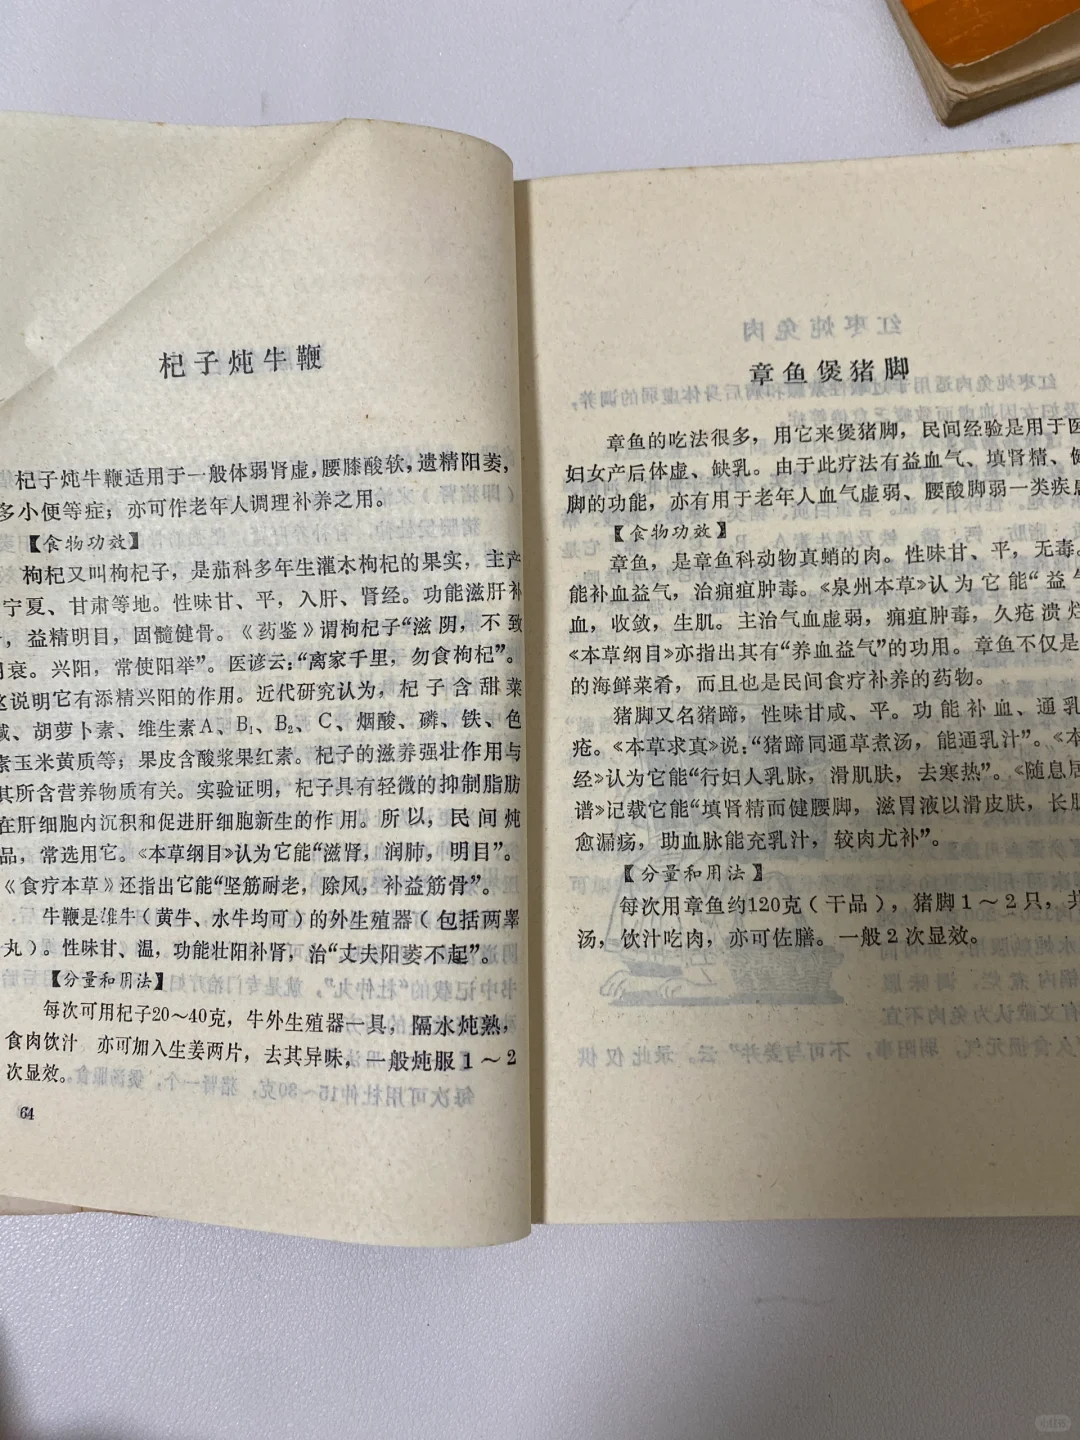 杞子炖牛鞭
杞子炖牛鞭适用于一般体弱肾虚，腰膝酸软，遗精阳萎，
多小便等症；亦可作老年人调理补养之用。
【食物功效】
枸杞又叫枸杞子，是茄科多年生灌木枸杞的果实，主产
宁夏、甘肃等地。性味甘、平，入肝、肾经。功能滋肝补
，益精明目，固髓健骨。《药鉴》谓枸杞子“滋阴，不致
衰。兴阳，常使阳举”。医谚云：“离家千里，勿食枸杞”。
这说明它有添精兴阳的作用。近代研究认为，杞子含甜菜
碱、胡萝卜素、维生素A、B₁、B₂、C、烟酸、磷、铁、色
素玉米黄质等；果皮含酸浆果红素。杞子的滋养强壮作用与
其所含营养物质有关。实验证明，杞子具有轻微的抑制脂肪
在肝细胞内沉积和促进肝细胞新生的作用。所以，民间炖
品，常选用它。《本草纲目》认为它能“滋肾，润肺，明目”。
《食疗本草》还指出它能“坚筋耐老，除风，补益筋骨”。
牛鞭是雄牛（黄牛、水牛均可）的外生殖器（包括两睾
丸）。性味甘、温，功能壮阳补肾，治“丈夫阳萎不起”。
【分量和用法】
每次可用杞子20～40克，牛外生殖器一具，隔水炖熟，
食肉饮汁 亦可加入生姜两片，去其异味，一般炖服1～2
次显效。
64
章鱼煲猪脚
章鱼的吃法很多，用它来煲猪脚，民间经验是用于医
妇女产后体虚、缺乳。由于此疗法有益血气、填肾精、健
脚的功能，亦有用于老年人血气虚弱、腰酸脚弱一类疾患
【食物功效】
章鱼，是章鱼科动物真蛸的肉。性味甘、平，无毒。
能补血益气，治痈疽肿毒。《泉州本草》认为它能“益气
血，收敛，生肌。主治气血虚弱，痈疽肿毒，久疮溃烂
《本草纲目》亦指出其有“养血益气”的功用。章鱼不仅是
的海鲜菜肴，而且也是民间食疗补养的药物。
猪脚又名猪蹄，性味甘咸、平。功能补血、通乳
疮。《本草求真》说：“猪蹄同通草煮汤，能通乳汁”。《本
经》认为它能“行妇人乳脉，滑肌肤，去寒热”。《随息居
谱》记载它能“填肾精而健腰脚，滋胃液以滑皮肤，长肌
愈漏疡，助血脉能充乳汁，较肉尤补”。
【分量和用法】
每次用章鱼约120克（干品），猪脚1～2只，共
汤，饮汁吃肉，亦可佐膳。一般2次显效。